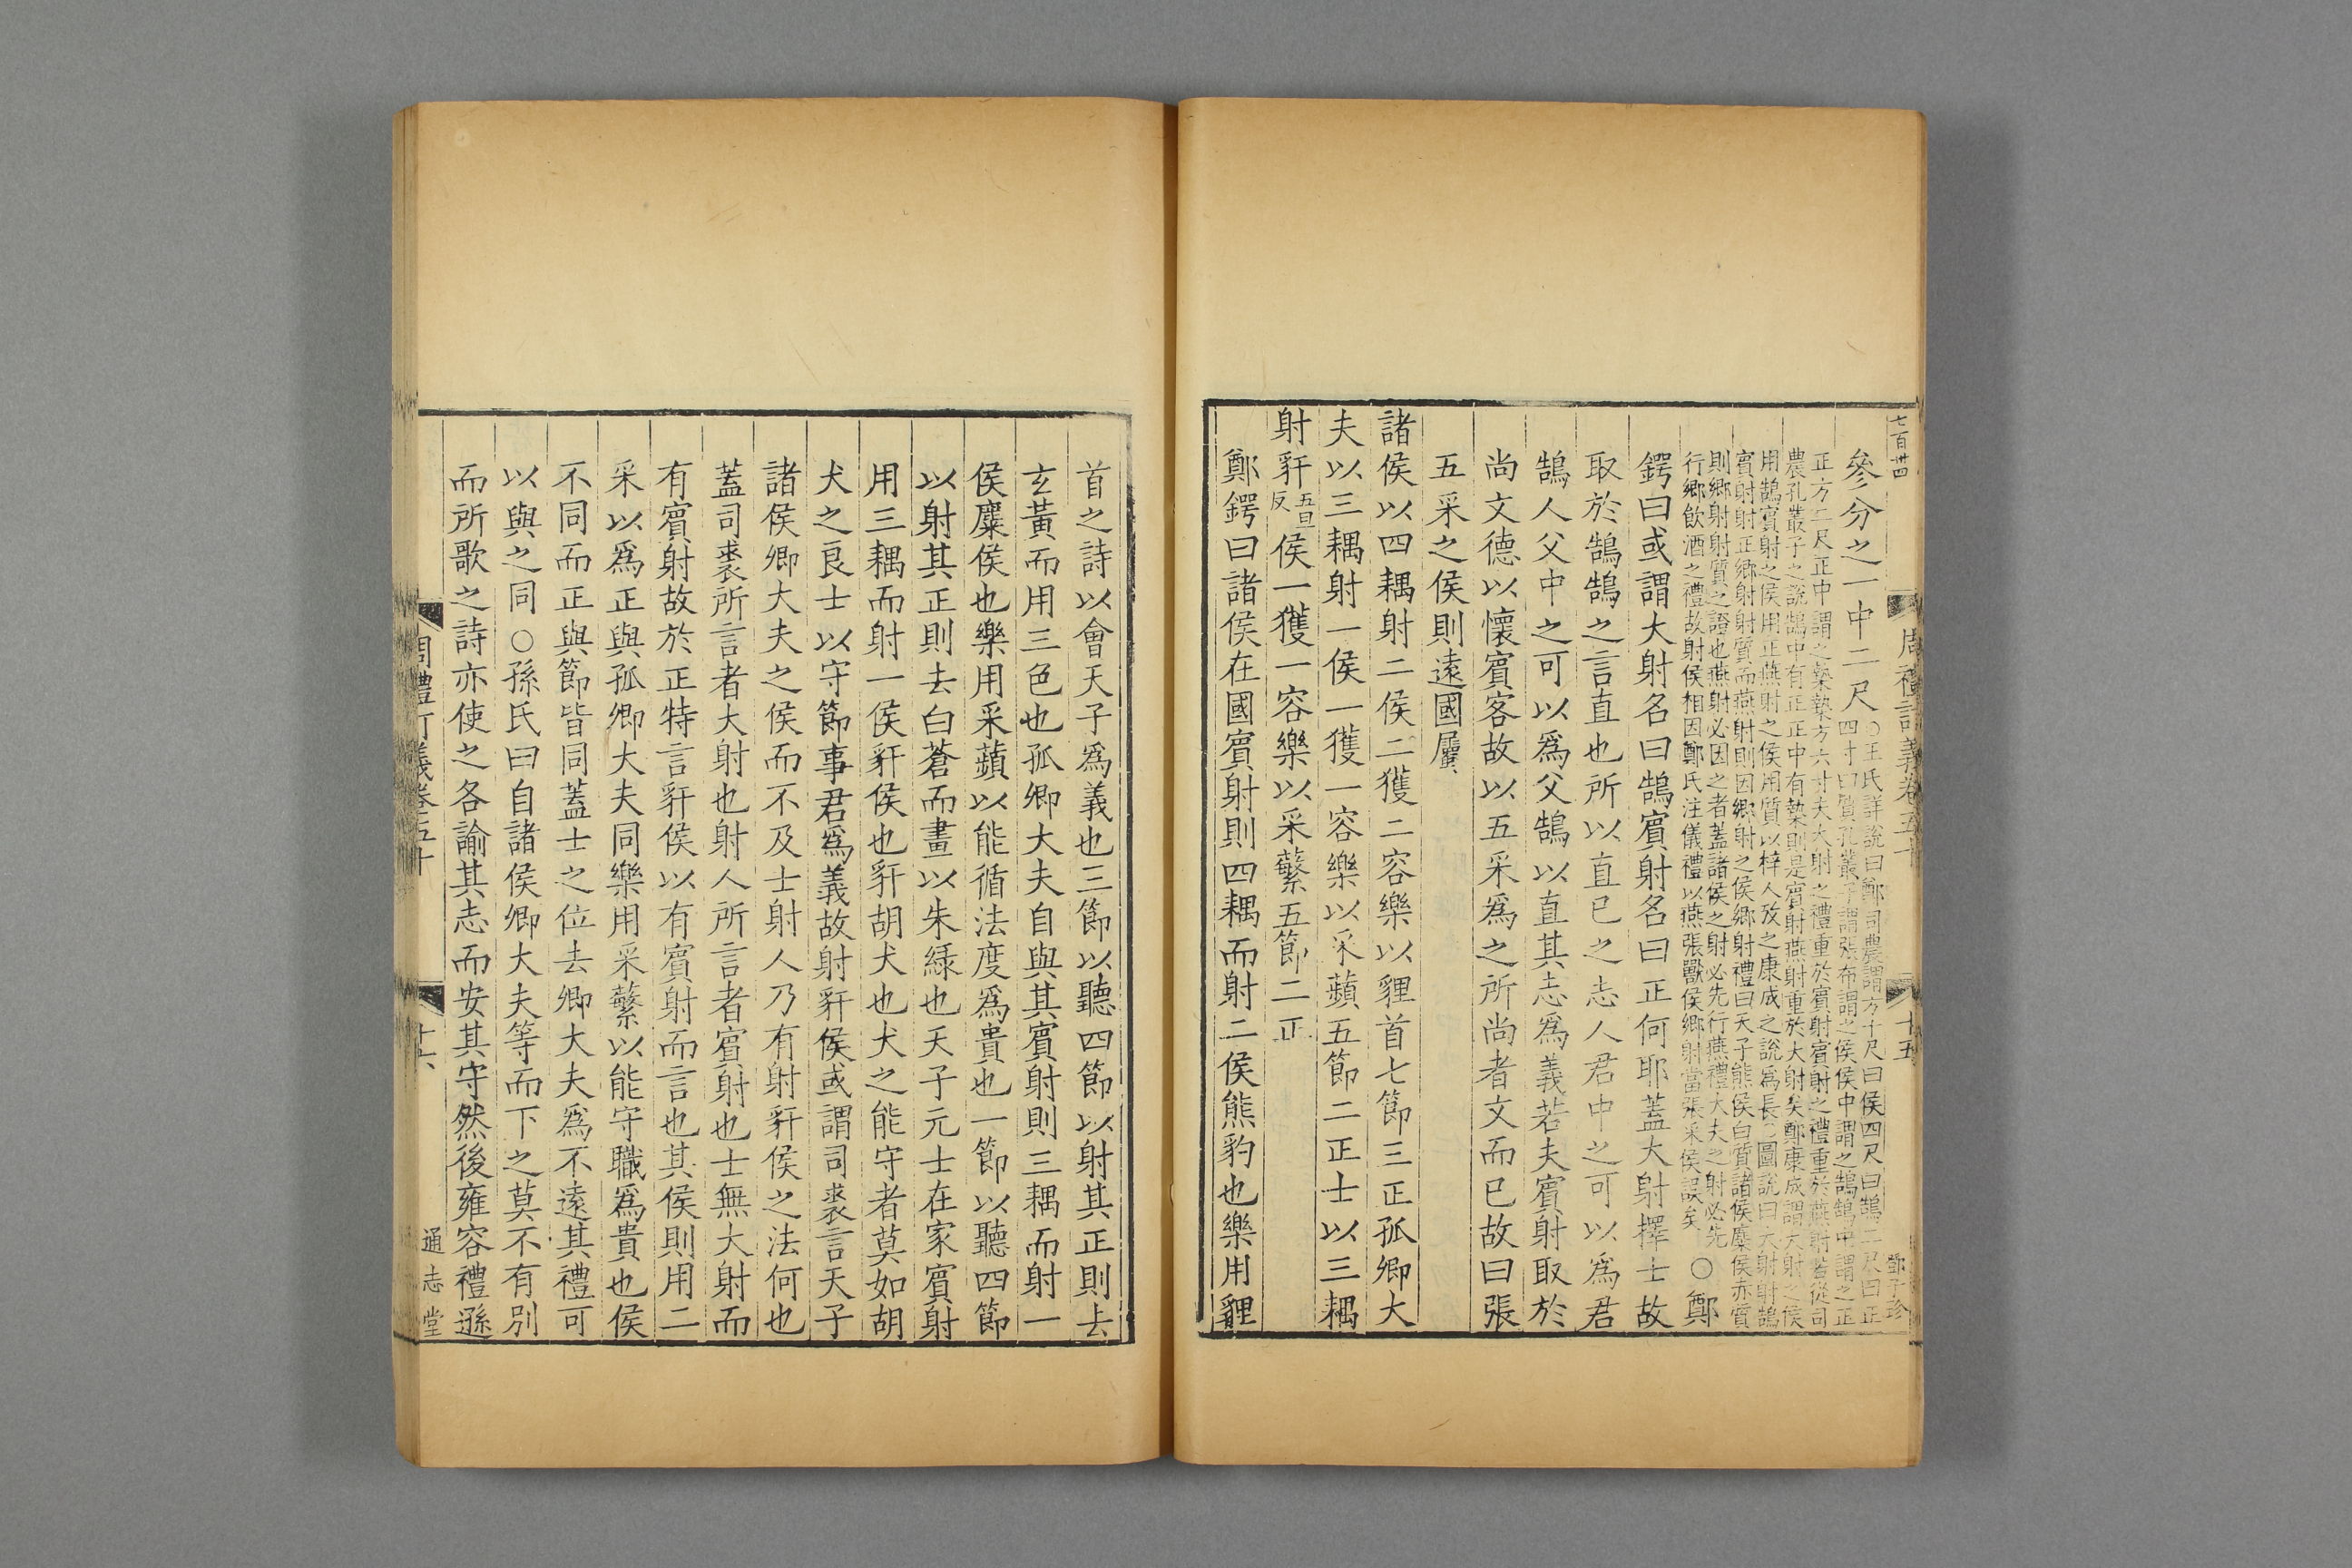 七百卌四
周禮訂義卷五十
十五
鄧子珍
參分之一中二尺
○王氏詳說曰鄭司農謂方十尺曰侯四尺曰鵠二尺曰正
四寸曰質孔叢子謂張布謂之侯侯中謂之鵠鵠中謂之正
正方二尺正中謂之槷槷方六寸夫大射之禮重於賓射賓射之禮重於燕射若從司
農孔叢子之說鵠中有正正中有槷則是賓射燕射重於大射矣鄭康成謂大射之侯
用鵠賓射之侯用正燕射之侯用質以梓人攷之康成之說爲長○圖說曰大射射鵠
賓射射正鄉射射質而燕射則因鄉射之侯鄉射禮曰天子熊侯白質諸侯麋侯赤質
則鄉射射質之證也燕射必因之者蓋諸侯之射必先行燕禮大夫之射必先
行鄉飲酒之禮故射侯相因鄭氏注儀禮以燕張獸侯鄉射當張采侯誤矣
○鄭
鍔曰或謂大射名曰鵠賓射名曰正何耶蓋大射擇士故
取於鵠鵠之言直也所以直已之志人君中之可以爲君
鵠人父中之可以爲父鵠以直其志爲義若夫賓射取於
尚文德以懷賓客故以五采爲之所尚者文而已故曰張
五采之侯則遠國屬
諸侯以四耦射二侯二獲二容樂以貍首七節三正孤卿大
夫以三耦射一侯一獲一容樂以采蘋五節二正士以三耦
射豻五旦反侯一獲一容樂以采蘩五節二正
鄭鍔曰諸侯在國賓射則四耦而射二侯熊豹也樂用貍
首之詩以會天子爲義也三節以聽四節以射其正則去
玄黃而用三色也孤卿大夫自與其賓射則三耦而射一
侯麋侯也樂用采蘋以能循法度爲貴也一節以聽四節
以射其正則去白蒼而畫以朱綠也天子元士在家賓射
用三耦而射一侯豻侯也豻胡犬也犬之能守者莫如胡
犬之良士以守節事君爲義故射豻侯或謂司裘言天子
諸侯卿大夫之侯而不及士射人乃有射豻侯之法何也
蓋司裘所言者大射也射人所言者賓射也士無大射而
有賓射故於正特言豻侯以有賓射而言也其侯則用二
采以爲正與孤卿大夫同樂用采蘩以能守職爲貴也侯
不同而正與節皆同蓋士之位去卿大夫爲不遠其禮可
以與之同○孫氏曰自諸侯卿大夫等而下之莫不有別
而所歌之詩亦使之各諭其志而安其守然後雍容禮遜
周禮訂義卷五十
十六
通志堂